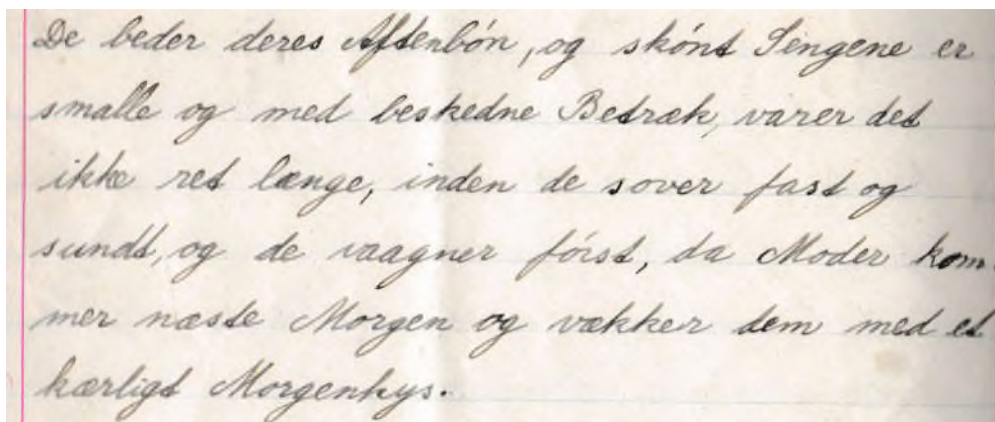 De beder deres Aftenbón, og skónt Sengene er
smalle og med beskedne Betræk, varer det
ikke ret længe, inden de sover fast og
sundt, og de vaagner fórst, da Moder kom-
mer næste Morgen og vækker dem med et
kærligt Morgenkys.